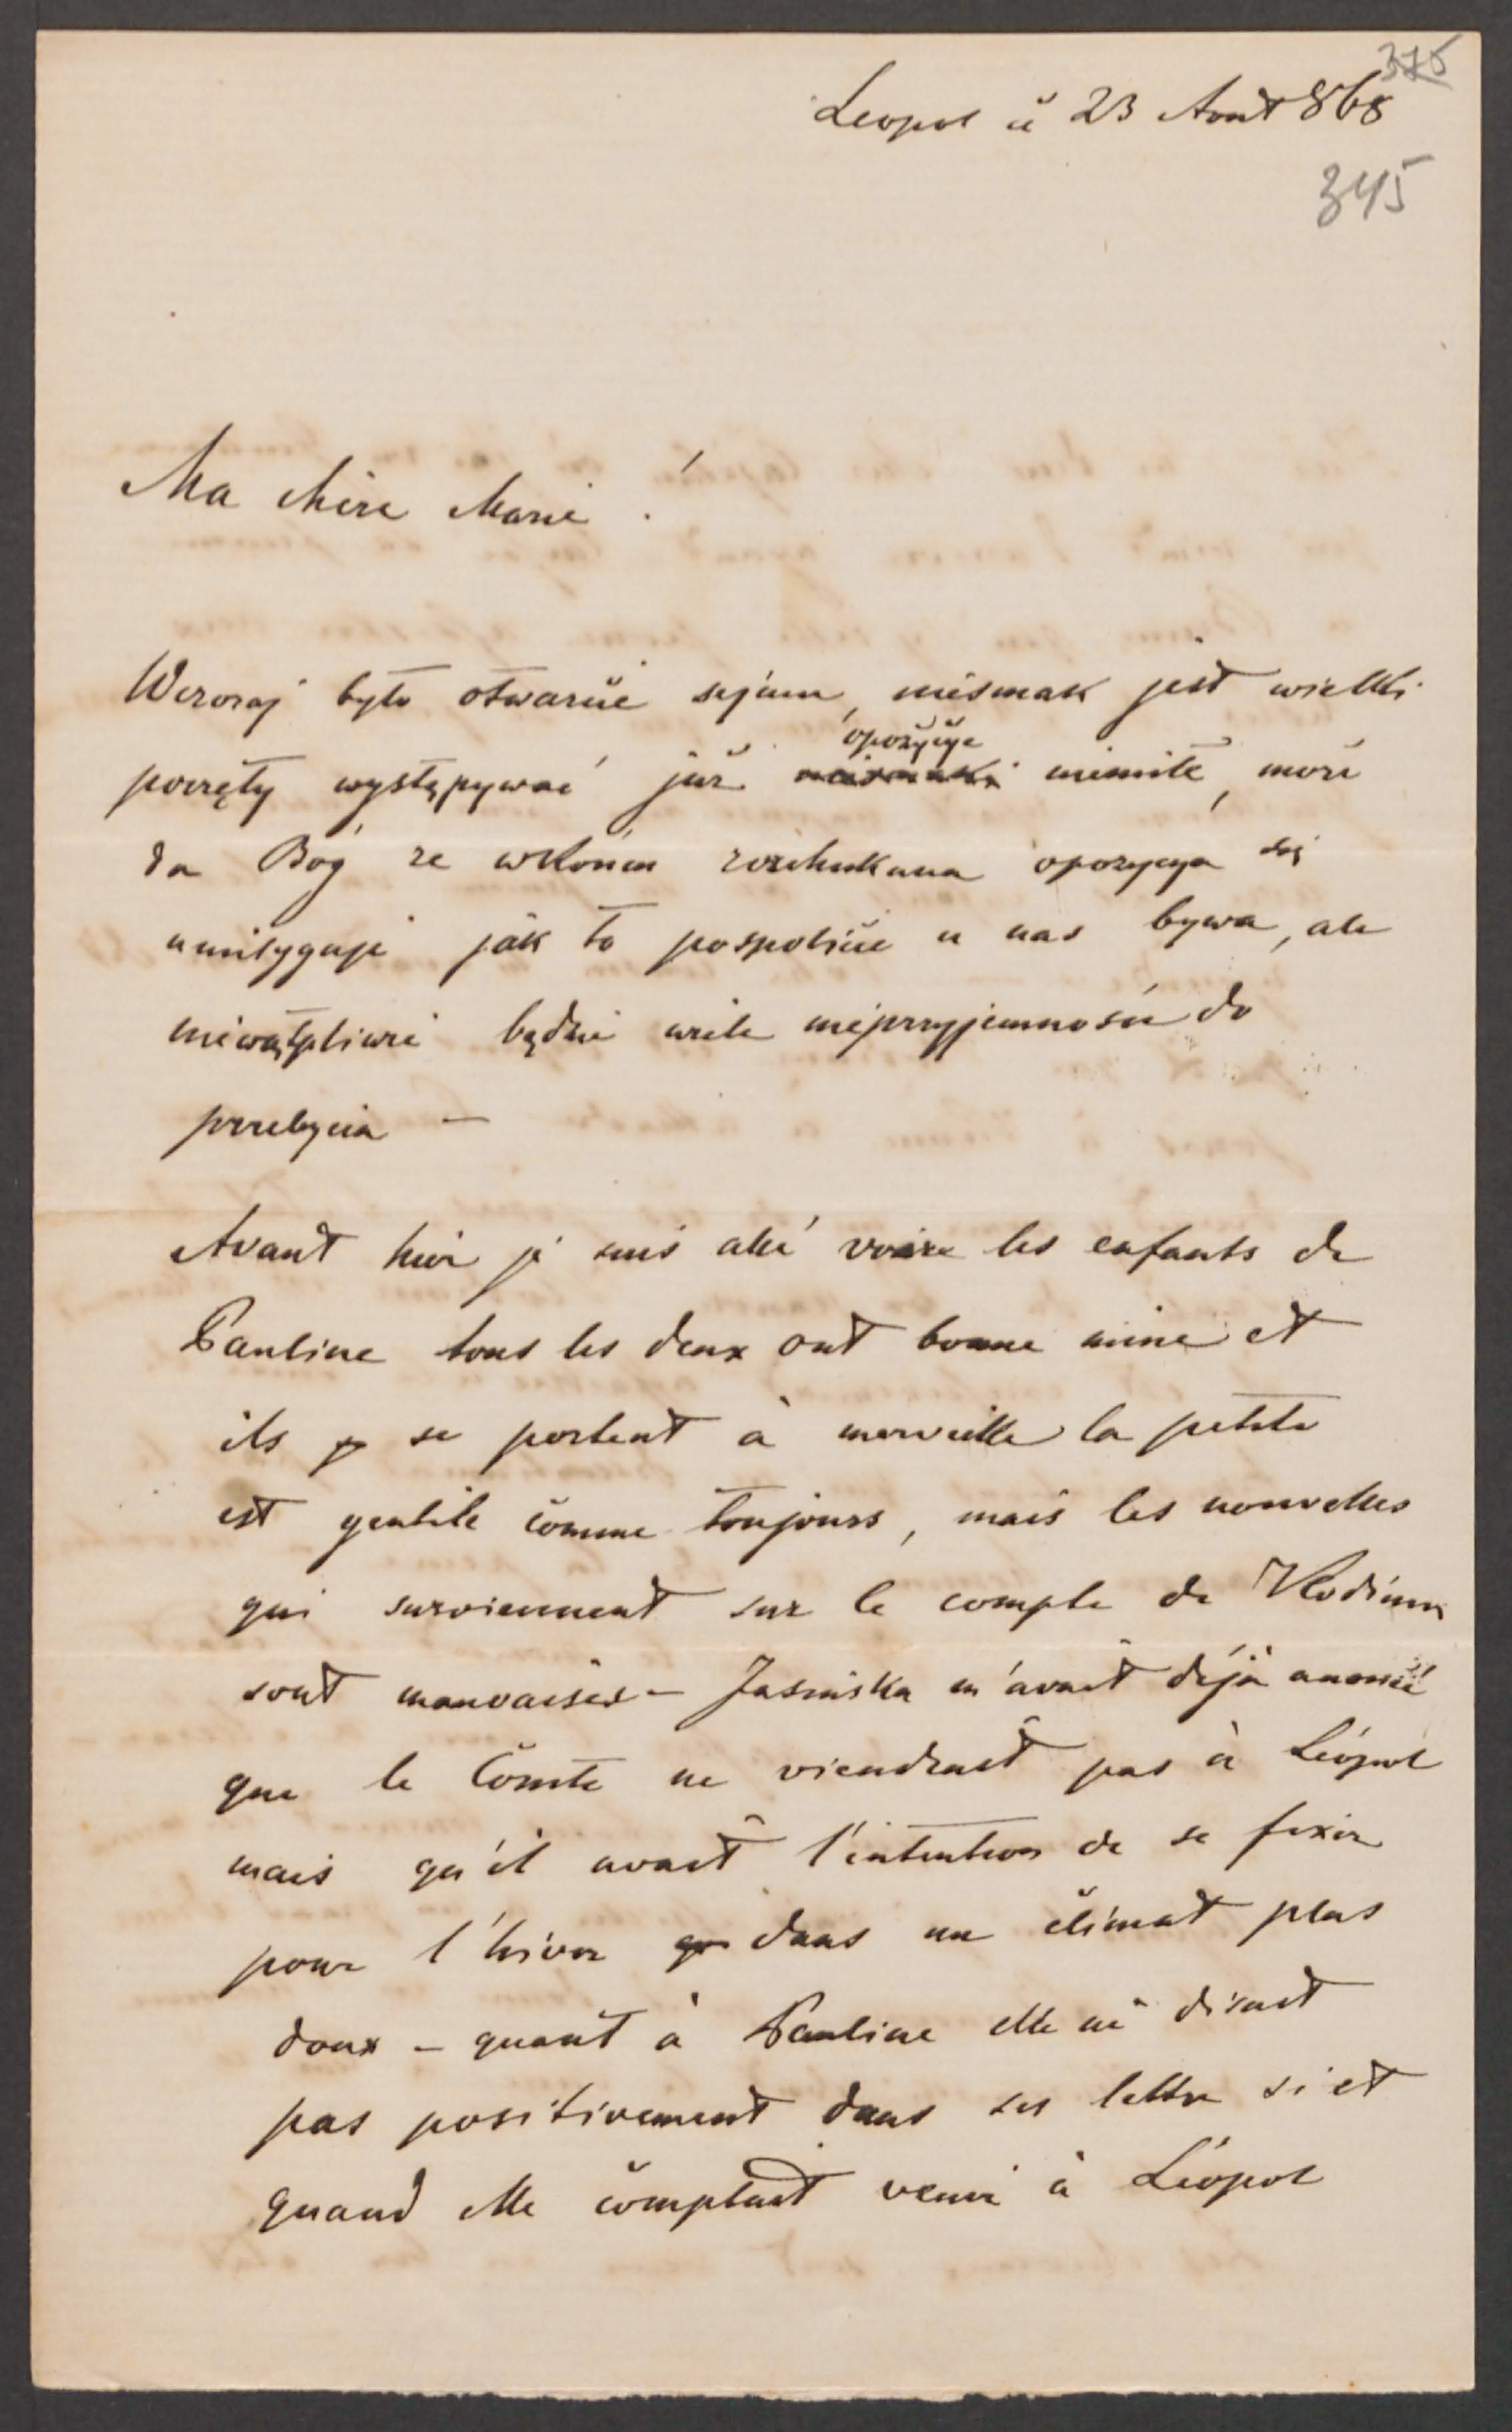 375
Leopol ii 23 Aout 868
345
Ma chère Marie !
Wczoraj było otwarcie sejmu, niesmak jest wielki
poczęły występywać już opozycye niemiłe, może
da Bóg że wkońcu rozchukana opozycya się
umityguje jak to pospolicie u nas bywa, ale
niewątpliwie będzie wiele nieprzyjemności do
przebycia —
Avant hier je suis allé voire les enfants de
Pauline tous les deux ont bonne mine et
ils se portent à merveille la petite
est gentile comme toujours, mais les nouvelles
qui surviennent sur le compte de Vlodimir
sont mauvaises — Jasinska m'avait déjà anoncé
que le Comte ne viendrait pas à Léopol
mais qu'il avait l'intention de se fixer
pour l'hiver dans un climat plus
doux — quant à Pauline elle ne disait
pas positivement dans ses lettre si et
quand elle comptait venir à Léopol